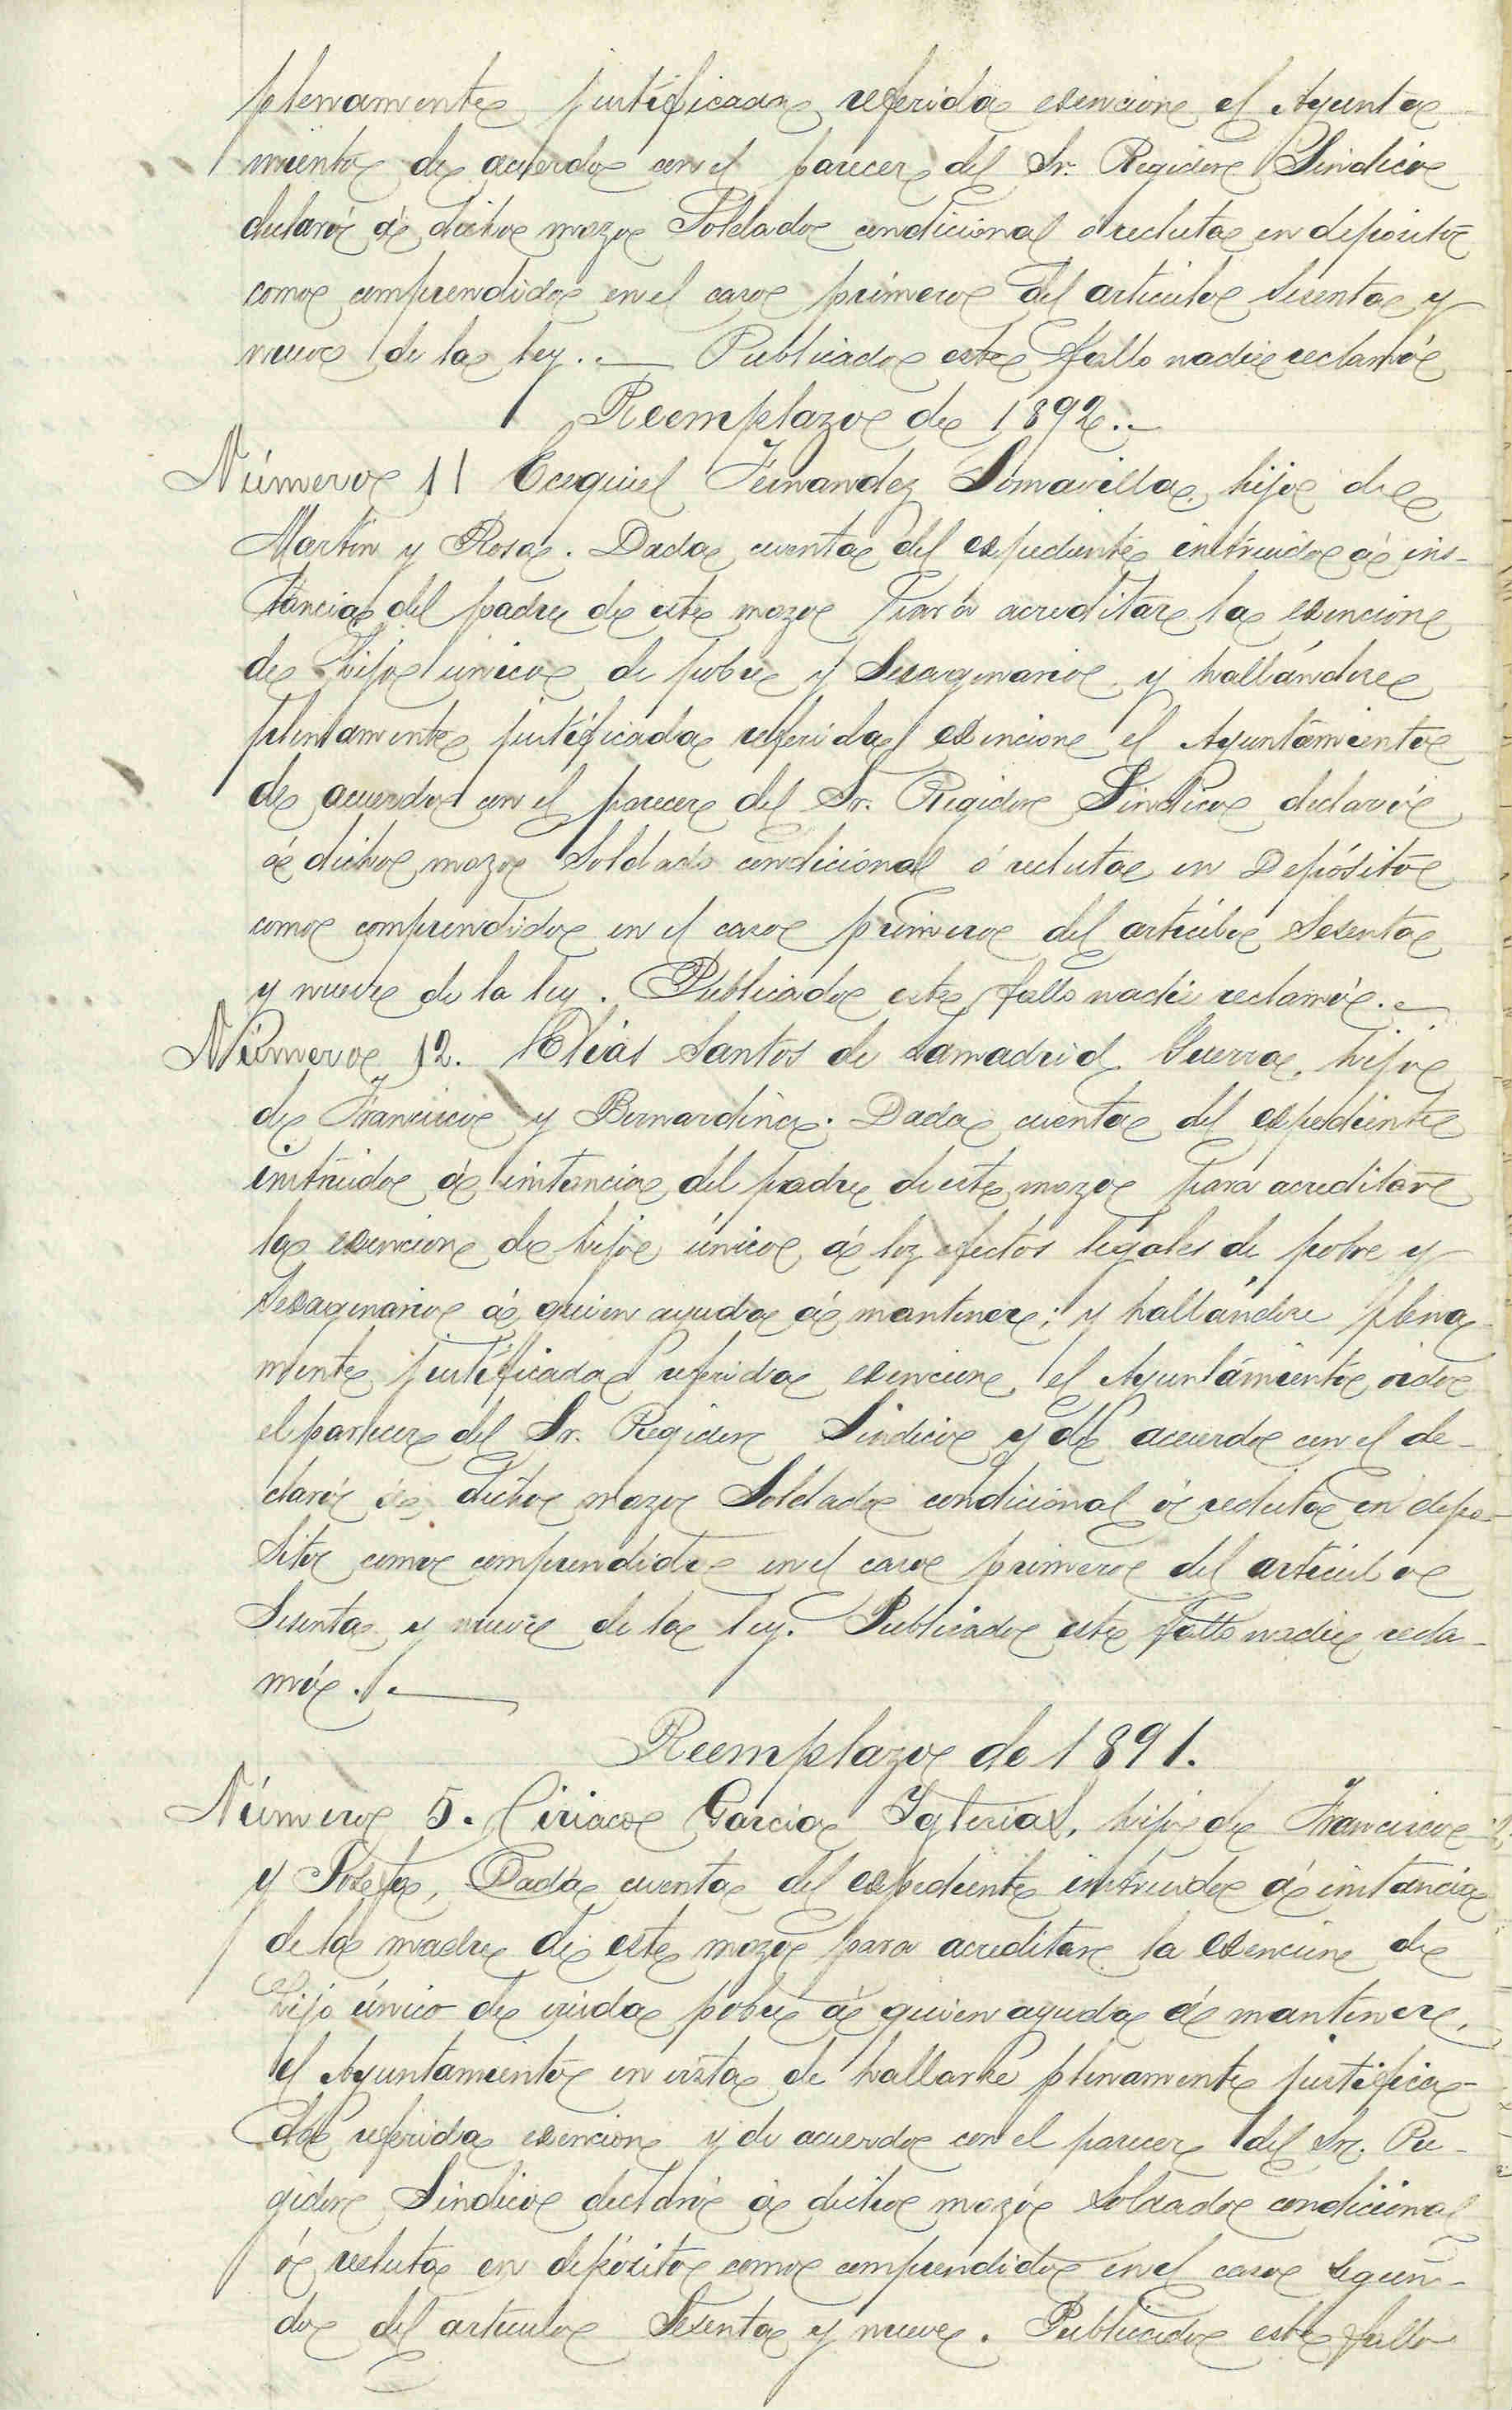 plenamente justificada referida esencion el Ayunta
miento de acuerdo con el parecer del Sr. Regidor Sindico
declaró á dicho mozo Soldado condicional ó recluta en deposito
como comprendido en el caso primero del articulo Sesenta y
nueve de la ley. — Publicado este fallo nadie reclamó
Reemplazo de 1892. —
Número 11 Ecequiel Fernandez Somavilla, hijo de
Martin y Rosa. Dada cuenta del espediente instruido á ins-
tancia del padre de este mozo para acreditar la esencion
de hijo único de pobre y Sesagenario y hallándose
plenamente justificada referida esencion el Ayuntamiento
de acuerdo con el parecer del Sr. Regidor Sindico declaró
á dicho mozo Soldado condicional ó recluta en Depósito
como comprendido en el caso primero del artículo Sesenta
y nueve de la ley. Publicado este fallo nadie reclamó. —
Número 12. Elias Santos de Lamadrid Guerra, hijo
de Francisco y Bernardina. Dada cuenta del espediente
instruido á instancia del padre de este mozo para acreditar
la esencion de hijo único á los efectos legales de pobre y
Sesagenario á quien ayuda á mantener; y hallándose plena-
mente justificada referida esencion el Ayuntamiento oido
el parecer del Sr. Regidor Sindico y de acuerdo con el de-
claró á dicho mozo Soldado condicional ó recluta en depo-
sito como comprendido en el caso primero del artículo
Sesenta y nueve de la ley. Publicado este fallo nadie recla-
mó. —
Reemplazo de 1891.
Número 5. Ciriaco Garcia Yglesias, hijo de Francisco
y Josefa, Dada cuenta del espediente instruido á instancia
de la madre de este mozo para acreditar la esencion de
hijo único de viuda pobre á quien ayuda á mantener,
el Ayuntamiento en vista de hallarse plenamente justifica-
da referida esencion y de acuerdo con el parecer del Sr. Re-
gidor Sindico declaró á dicho mozo Soldado condicional
ó recluta en depósito como comprendido en el caso segun-
do del articulo Sesenta y nueve. Publicado este fallo